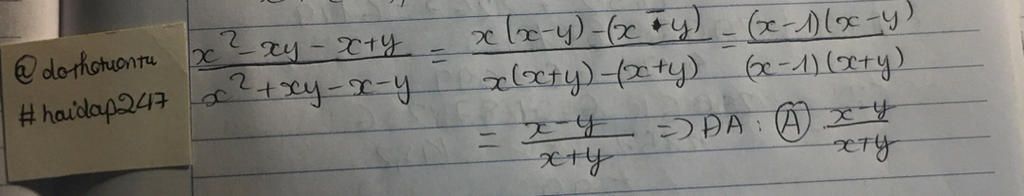 @dothotuontu
#haidap247
\frac{x^2-xy-x+y}{x^2+xy-x-y} = \frac{x(x-y)-(x-y)}{x(x+y)-(x+y)} = \frac{(x-1)(x-y)}{(x-1)(x+y)}
= \frac{x-y}{x+y} => ĐA: Ⓐ \frac{x-y}{x+y}